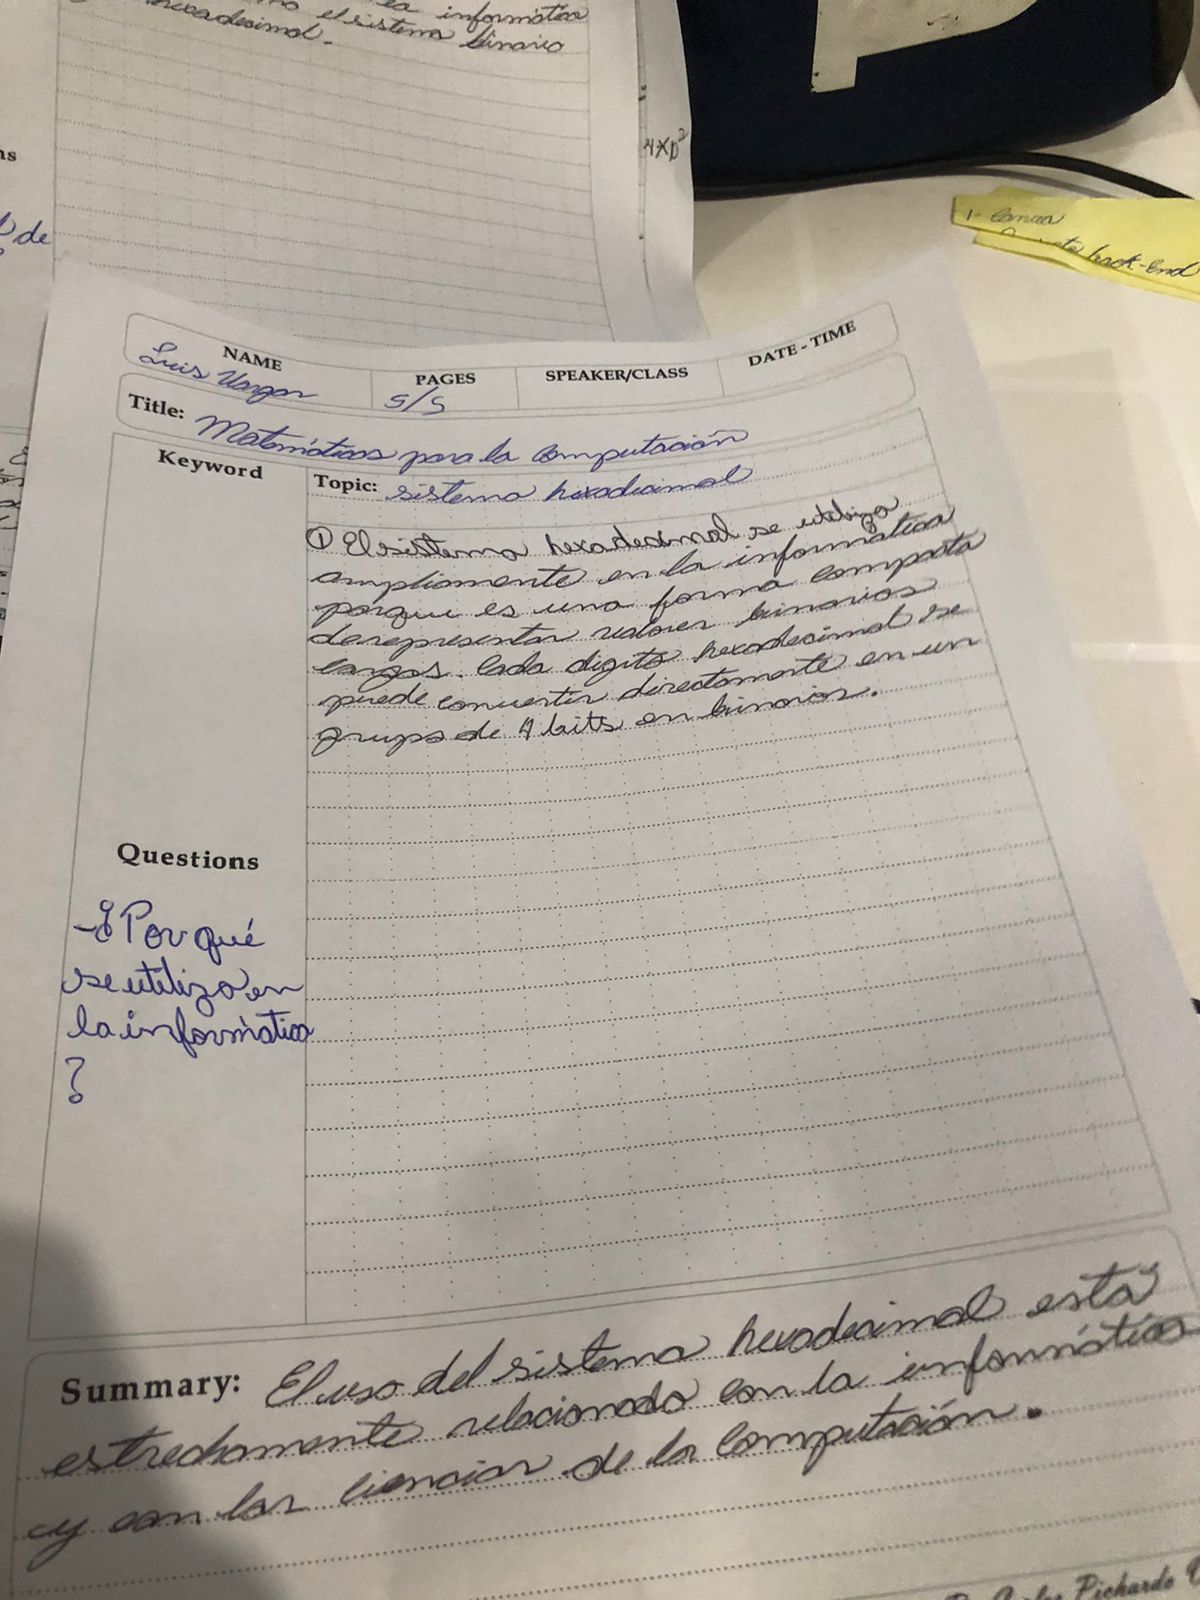 la informática
hexadecimal.
el sistema binario
ns
de
4xD²
1- Canva
back-End
NAME
PAGES
SPEAKER/CLASS
DATE - TIME
Luis Vargas
5/5
Title: Matemáticas para la computación
Keyword
Topic: sistema hexadecimal
① El sistema hexadecimal se utiliza
ampliamente en la informática
porque es una forma compacta
de representar valores binarios
largos. Cada digito hexadecimal se
puede convertir directamente en un
grupo de 4 bits en binarios.
Questions
-¿Por qué
se utiliza en
la informática
?
Summary: El uso del sistema hexadecimal está
estrechamente relacionado con la informática
y con las ciencias de la computación.
Carlos Pichardo